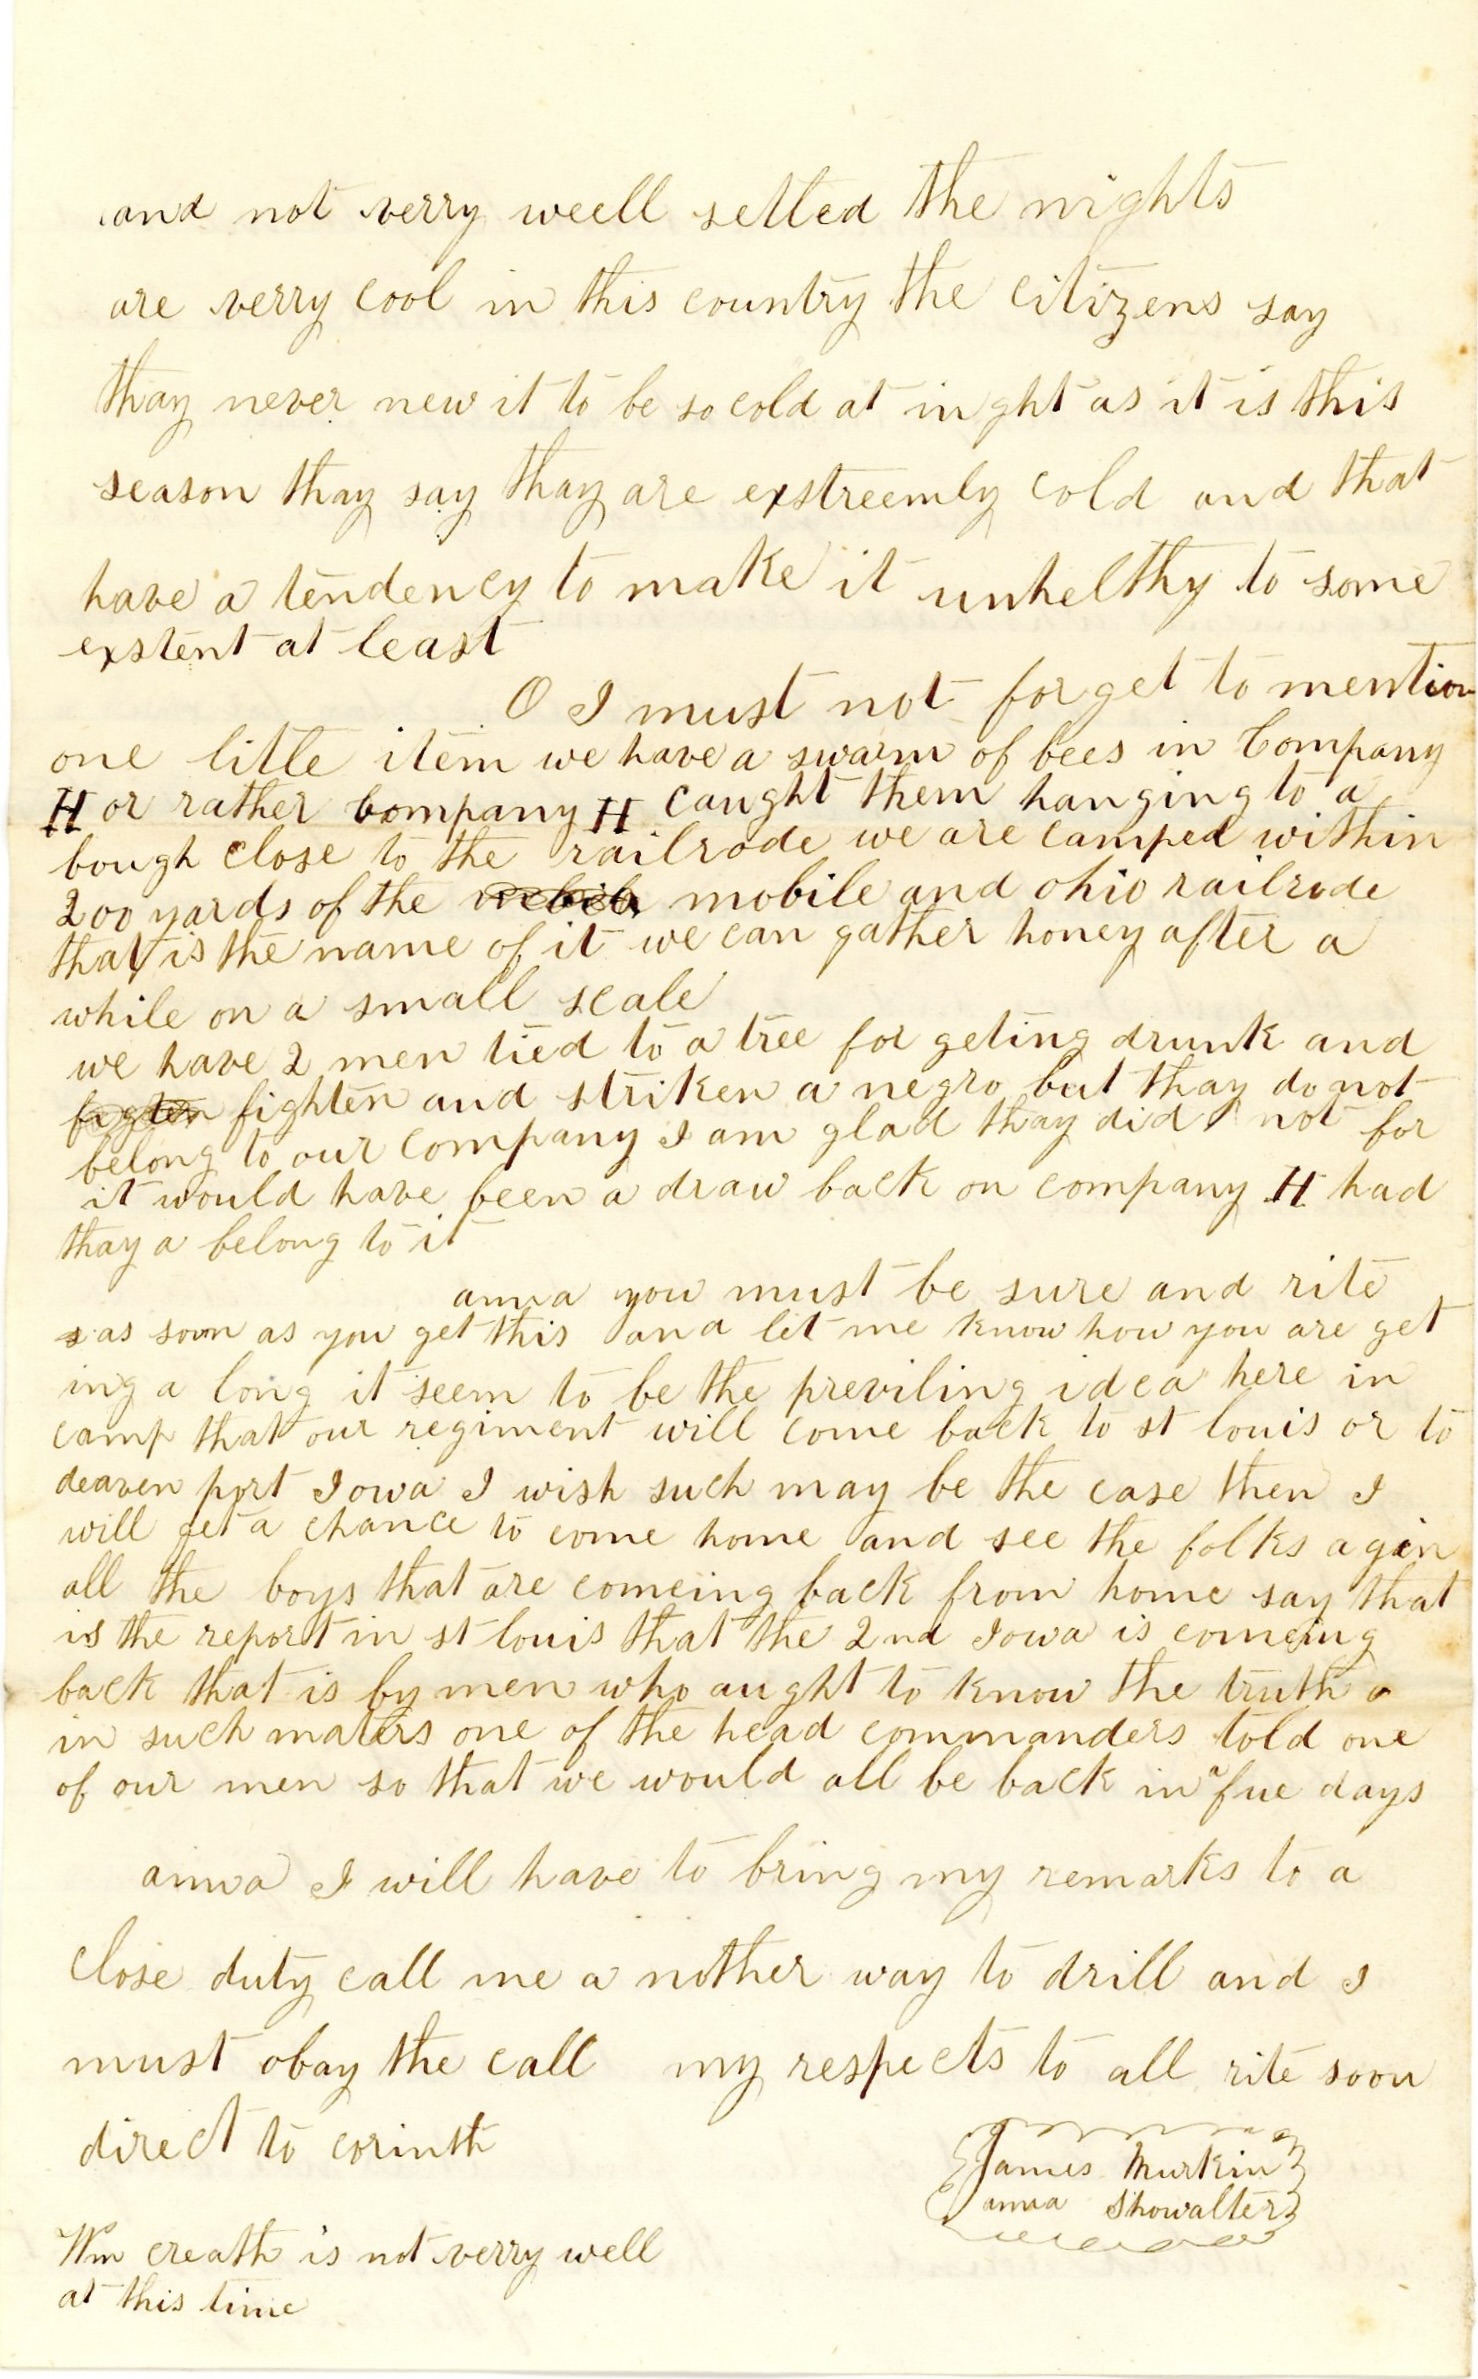 and not verry weell setled the nights
are verry cool in this country the citizens say
thay never new it to be so cold at inght as it is this
season thay say thay are exstreemly cold and that
have a tendency to make it unhelthy to some
exstent at least
O I must not forget to mention
one litle item we have a swarm of bees in Company
H or rather Company H caught them hanging to a
bough close to the railrode we are camped within
200 yards of the mobile and ohio railrode
that is the name of it we can gather honey after a
while on a small scale
we have 2 men tied to a tree for geting drunk and
figten fighten and striken a negro but thay do not
belong to our company I am glad thay did not for
it would have been a draw back on company H had
thay a belong to it
anna you must be sure and rite
as soon as you get this and let me know how you are get
ing a long it seem to be the previling idea here in
camp that our regiment will come back to st louis or to
deaven port Iowa I wish such may be the case then I
will get a chance to come home and see the folks agin
all the boys that are comeing back from home say that
is the report in st louis that the 2nd Iowa is comeing
back that is by men who aught to know the truth
in such maters one of the head commanders told one
of our men so that we would all be back in a fue days
anna I will have to bring my remarks to a
close duty call me a nother way to drill and I
must obay the call my respects to all rite soon
direct to corinth
James Murkin
anna Showalter
Wm creath is not verry well
at this time